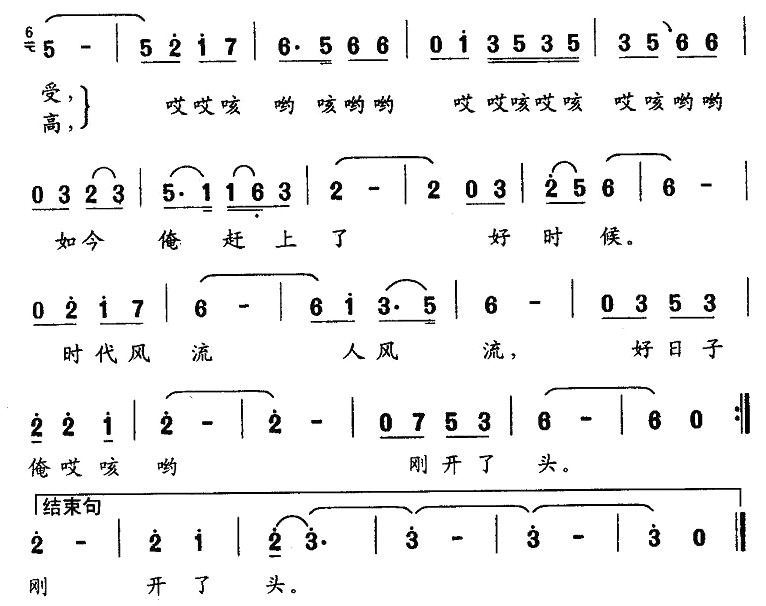 6 5 - | 5 2 1 7 | 6· 5 6 6 | 0 1 3 5 3 5 | 3 5 6 6 |
受, 哎哎咳 哟 咳哟哟 哎 哎咳哎咳 哎咳哟哟
高,
0 3 2 3 | 5· 1 1 6 3 | 2 - | 2 0 3 | 2 5 6 | 6 - |
如今 俺 赶 上 了 好 时 候。
0 2 1 7 | 6 - | 6 1 3· 5 | 6 - | 0 3 5 3 |
时代风 流 人 风 流, 好日子
2 2 1 | 2 - | 2 - | 0 7 5 3 | 6 - | 6 0 :|
俺哎咳 哟 刚开了 头。
结束句
2 - | 2 1 | 2 3· | 3 - | 3 - | 3 0 ‖
刚 开了 头。